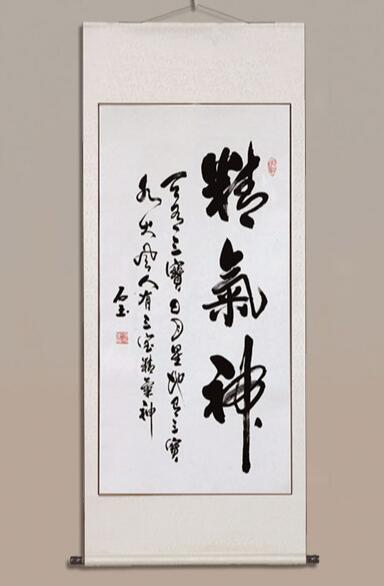 精氣神
天有三寶日月星地有三寶
水火風人有三宝精氣神